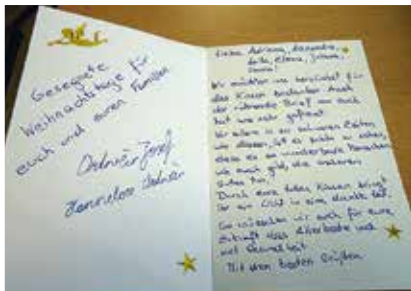 Gesegnete
Weihnachtstage für
euch und euren Familien
Josef
Hannelore
Liebe Adriana, Alexandra,
Leila, Elena, Juliana,
Wir möchten uns herzlichst für
das Kissen bedanken. Auch
der rührende Brief von euch
hat uns sehr gefreut.
Vor allem in so schweren Zeiten
wie diesen, ist es schön zu sehen,
dass es so wunderbare Menschen
wie euch gibt, die anderen
Gutes tun.
Durch eure tollen Kissen bringt
ihr ein Licht in eine dunkle Zeit.
So wünschen wir euch für eure
Zukunft alles Allerbeste und
viel Gesundheit.
Mit den besten Grüßen